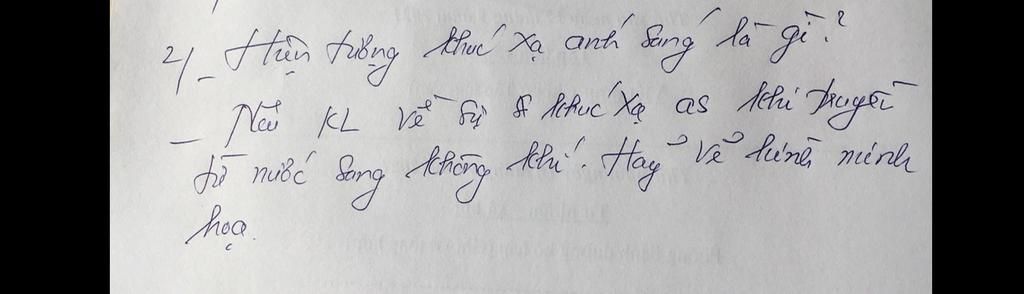 2/- Hiện tượng khúc xạ ánh sáng là gì?
- Nêu KL về sự khúc xạ as khi truyền
từ nước sang không khí. Hãy vẽ hình minh
họa.